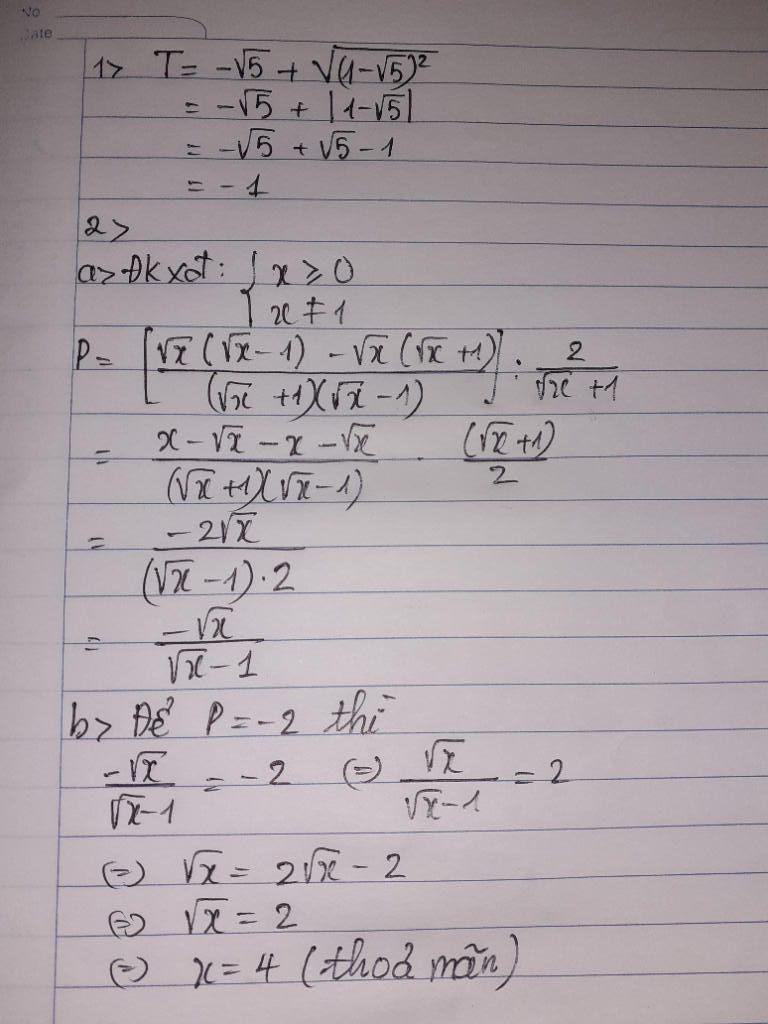 No
Date
1> T = -√5 + √(1-√5)²
= -√5 + |1-√5|
= -√5 + √5 - 1
= -1
2>
a> Đk xđ: { x ≥ 0
x ≠ 1
P = [(√x(√x-1) - √x(√x+1))/((√x+1)(√x-1))] : 2/(√x+1)
= (x-√x-x-√x)/((√x+1)(√x-1)) . (√x+1)/2
= -2√x/((√x-1).2)
= -√x/(√x-1)
b> Để P = -2 thì
-√x/(√x-1) = -2 (=) √x/(√x-1) = 2
(=) √x = 2√x - 2
(=) √x = 2
(=) x = 4 (thoả mãn)